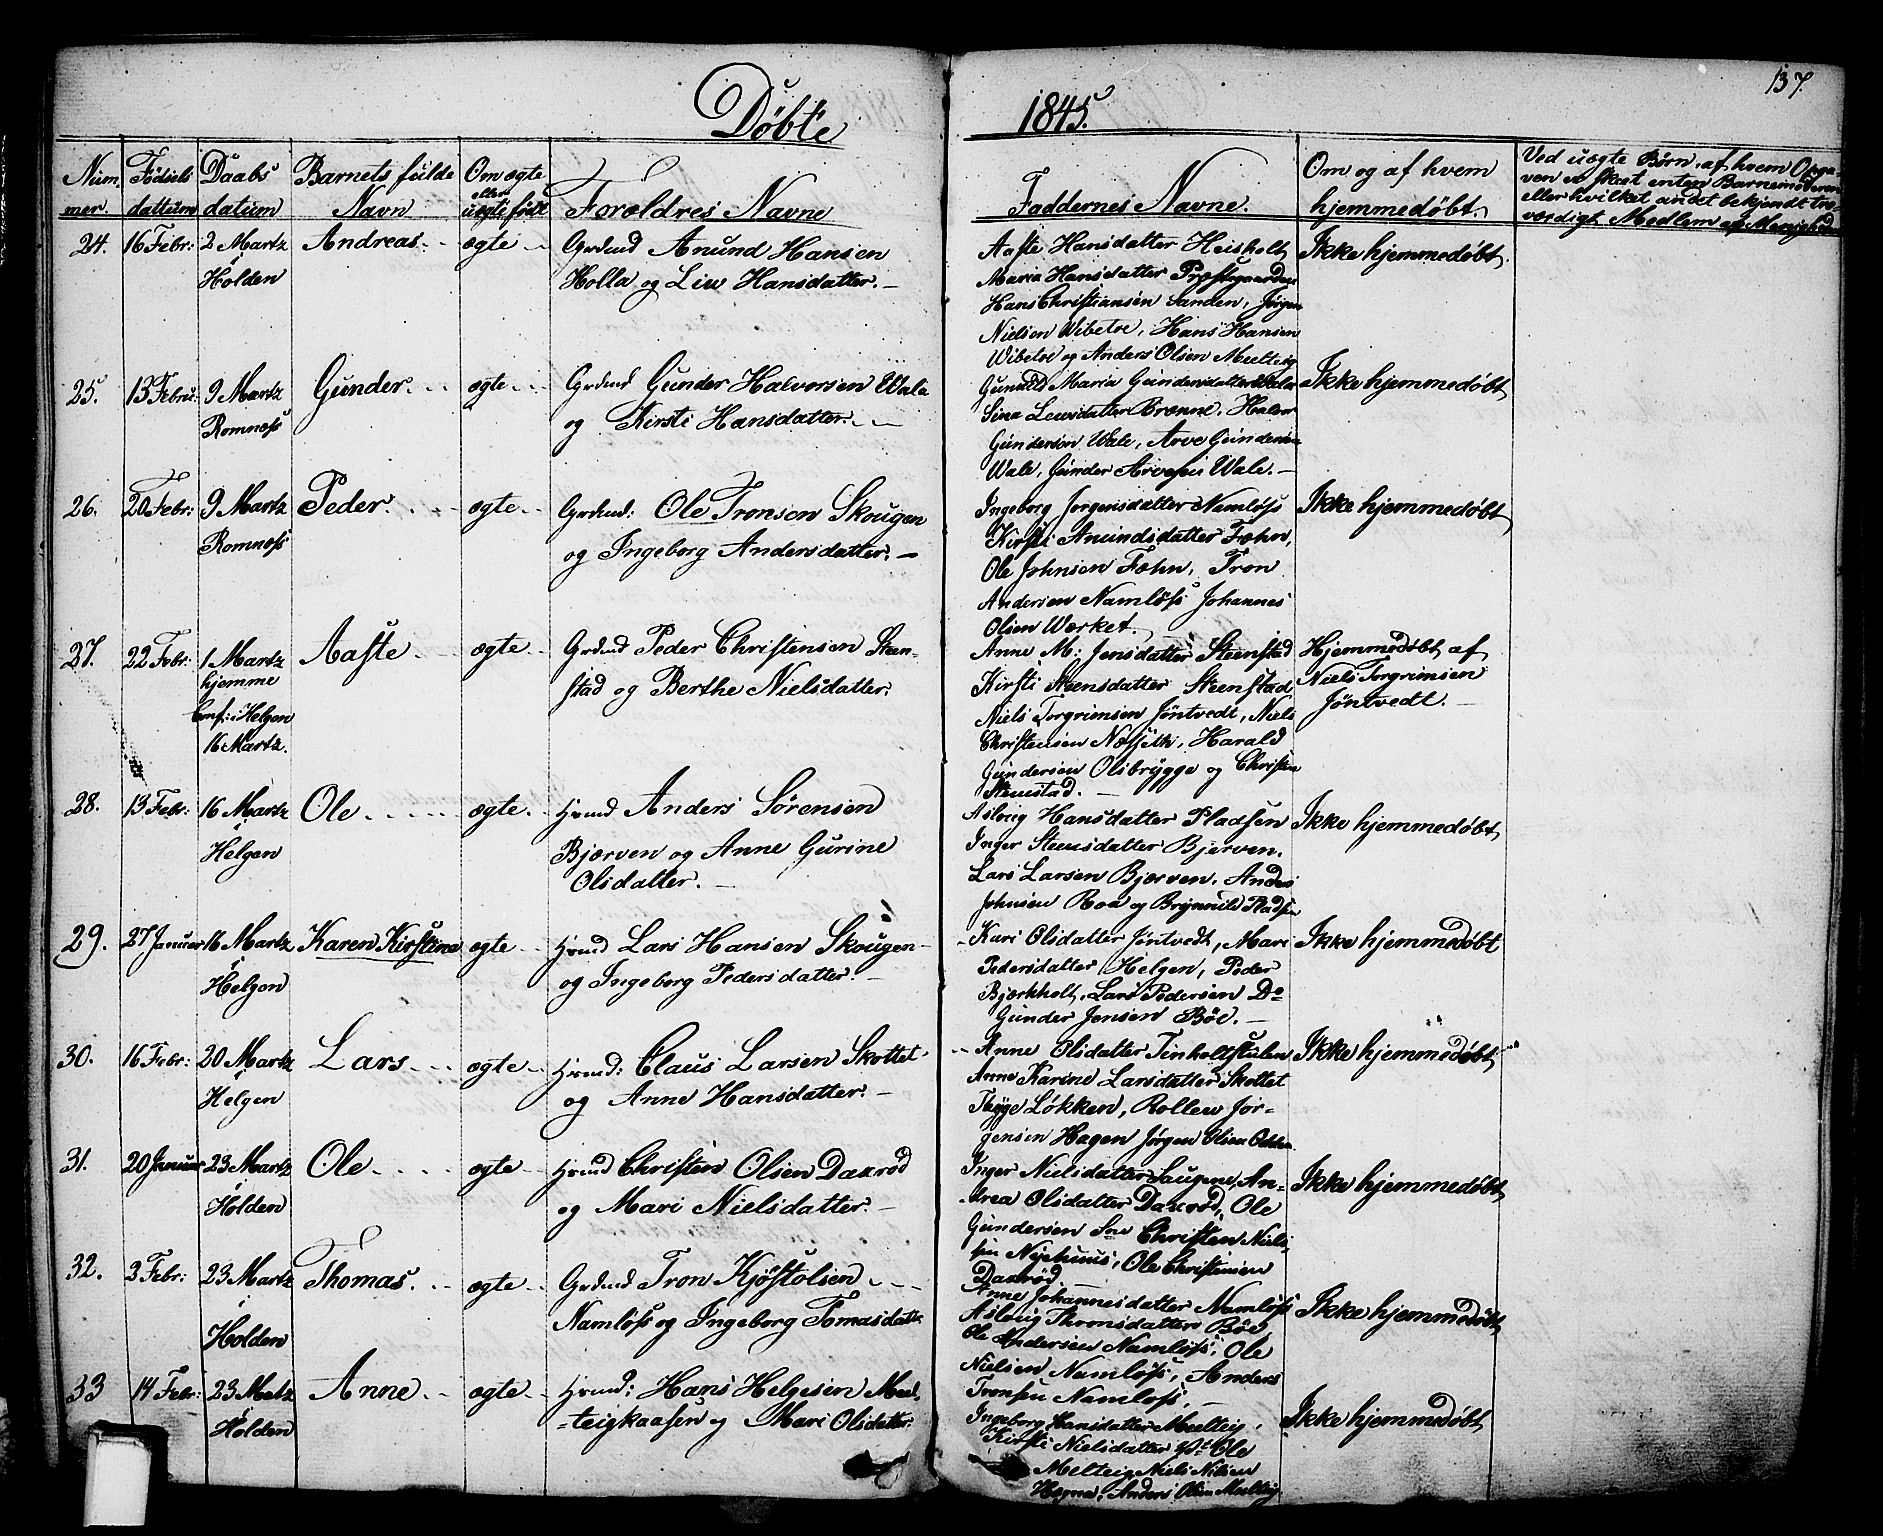 137.
Døbte 1845.
Num-
mer.
Fødsels
dattum
Daabs
datum
Barnets fulde
Navn
Om ægte
eller
uægte født
Forældres Navne
Faddernes Navne.
Om og af hvem
hjemmedøbt.
Ved uægte Børn, af hvem Opga
ven er skeet enten Barnemoderen
eller hvilket andet bekjendt tro
værdigt Medlem af Menigheden
24. 16 Febr: 2 Martz Andreas ægte
i
Holden
Grdmd Anund Hansen
Holla og Liv Hansdatter.
Aaste Hansdatter Heisholt
Maria Hansdatter Præstegaarden
Hans Christiansen Sanden, Jørgen
Nielsen Wibetoe, Hans Hansen
Wibetoe og Anders Olsen Meelteig
Ikke hjemmedøbt.
25. 13 Febru: 9 Martz Gunder. ægte
Romnæss
Grdmd Gunder Halvorsen Wala
og Kirsti Hansdatter.
Maria Gundersdatter
Sina Lewsdatter Brenne, Halvor
Gundersen Wale, Arve Gundersen
Wale, Gunder Arvesen Wale.
Ikke hjemmedøbt
26. 20 Febr: 9 Martz Peder. ægte
Romnæss
Grdmd: Ole Tronsen Skougen
og Ingeborg Andersdatter.
Ingeborg Jorgensdatter Namløss
Kirsti Anundsdatter Fæhn,
Ole Johnsen Fæhn, Tron
Andersen Namløss Johannes
Olsen Wærket.
Ikke hjemmedøbt
27. 22 Febr: 1 Martz Aaste ægte
hjemme
Conf: i Helgen
16 Martz.
Grdmd Peder Christensen Steen-
stad og Berthe Nielsdatter.
Anne M: Jensdatter Steenstad
Kirsti Steensdatter Steenstad
Niels Torgrimsen Jøntvedt, Niels
Christensen Næseth, Harald
Gundersen Olsbrygge og Christen
Steenstad.
Hjemmedøbt af
Niels Torgrimsen
Jøntvedt.
28. 13 Febr: 16 Martz Ole ægte
i
Helgen
Hrmd Anders Sørensen
Bjærven og Anne Gurine
Olsdatter.
Asloug Hansdatter Pladsen
Inger Steensdatter Bjerven,
Lars Larsen Bjærven, Anders
Johnsen Roa og Brynnild Pladsen
Ikke hjemmedøbt
29. 27 Januar 16 Martz Karen Kirstine ægte
i
Helgen
Hrmd Lars Hansen Skougen
og Ingeborg Pedersdatter.
Kari Olsdatter Jøntvedt, Mari
Pedersdatter Helgen, Peder
Bjærkholt, Lars Pedersen Do
Gunder Jensen Bøe.
Ikke hjemmedøbt
30. 16 Febr: 20 Martz Lars ægte
i
Helgen
Hrmd: Claus Larsen Skottet
og Anne Hansdatter.
Anne Olsdatter Tinholtstulen
Anne Karine Larsdatter Skottet
Thyge Løkken, Rollew Jør-
gensen Hagen Jørgen Olsen
Ikke hjemmedøbt
31. 20 Januar 23 Martz Ole ægte
i
Holden
Hrmd Christen Olsen Daxrød
og Mari Nielsdatter.
Inger Nielsdatter Saugene, An-
drea Olsdatter Daxrød, Ole
Gundersen Christen Niel-
sen Nyehuus, Ole Christensen
Daxrød
Ikke hjemmedøbt
32. 2 Febr: 23 Martz Thomas. ægte
i
Holden
Grdmd Tron Kjøstolsen
Namløss og Ingeborg Tomasdatt:
Anne Johannesdatter Namløss
Aslaug Thronsdatter Bøe
Ole Andersen Namløss, Ole
Nielsen Namløss, Anders
Tronsen Namløss,
Ikke hjemmedøbt
33 14 Febr: 23 Matz Anne ægte
i
Holden
Hrmd: Hans Helgesen Meel-
teigkaasen og Mari Olsdatter.
Ingeborg Hansdatter Meelteig,
Kirsti Nielsdatter Ole
Melteig Niels Nilsen
Hogna, Anders Olsen Meelteig
Ikke hjemmedøbt